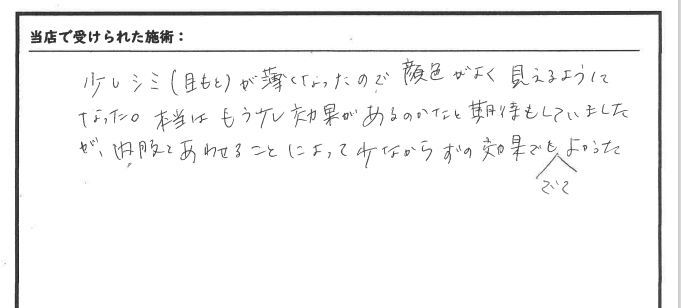 当店で受けられた施術：
少しシミ(目もと)が薄くなったので顔色がよく見えるように
なった。本当はもう少し効果があるのかなと期待もしていました
が、内服とあわせることによって少なからずの効果でも よかった
でて